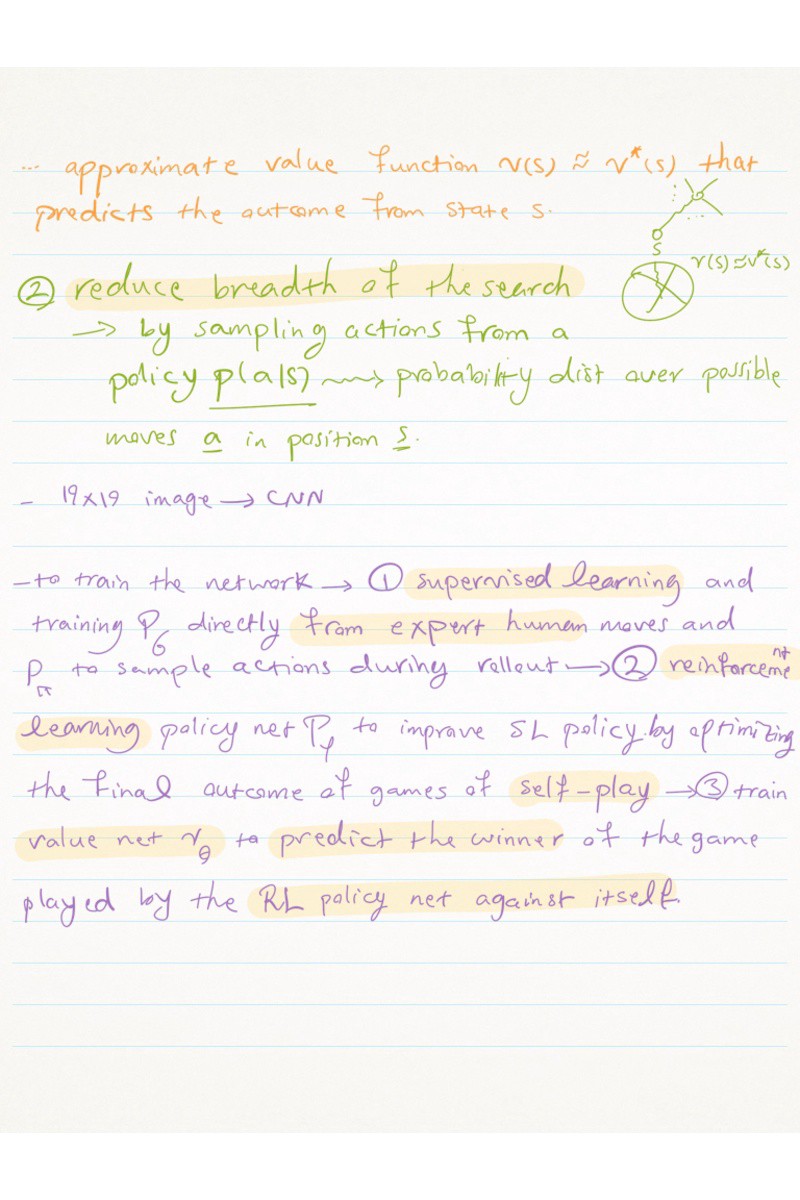 ... approximate value function v(s) ≈ v*(s) that
predicts the outcome from state s.
s
v(s) ≈ v*(s)
② reduce breadth of the search
→ by sampling actions from a
policy p(a|s) ⟿ probability dist over possible
moves a in position s.
- 19x19 image → CNN
- to train the network → ① supervised learning and
training P_6 directly from expert human moves and
P_π to sample actions during rollout → ② reinforcement
learning policy net P_ρ to improve SL policy by optimizing
the final outcome of games of self-play → ③ train
value net v_θ to predict the winner of the game
played by the RL policy net against itself.